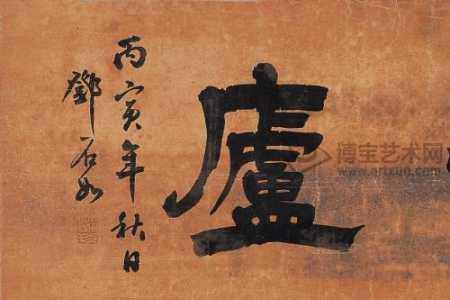 廬
丙寅年秋日
鄧石如
博宝艺术网
www.artxun.com